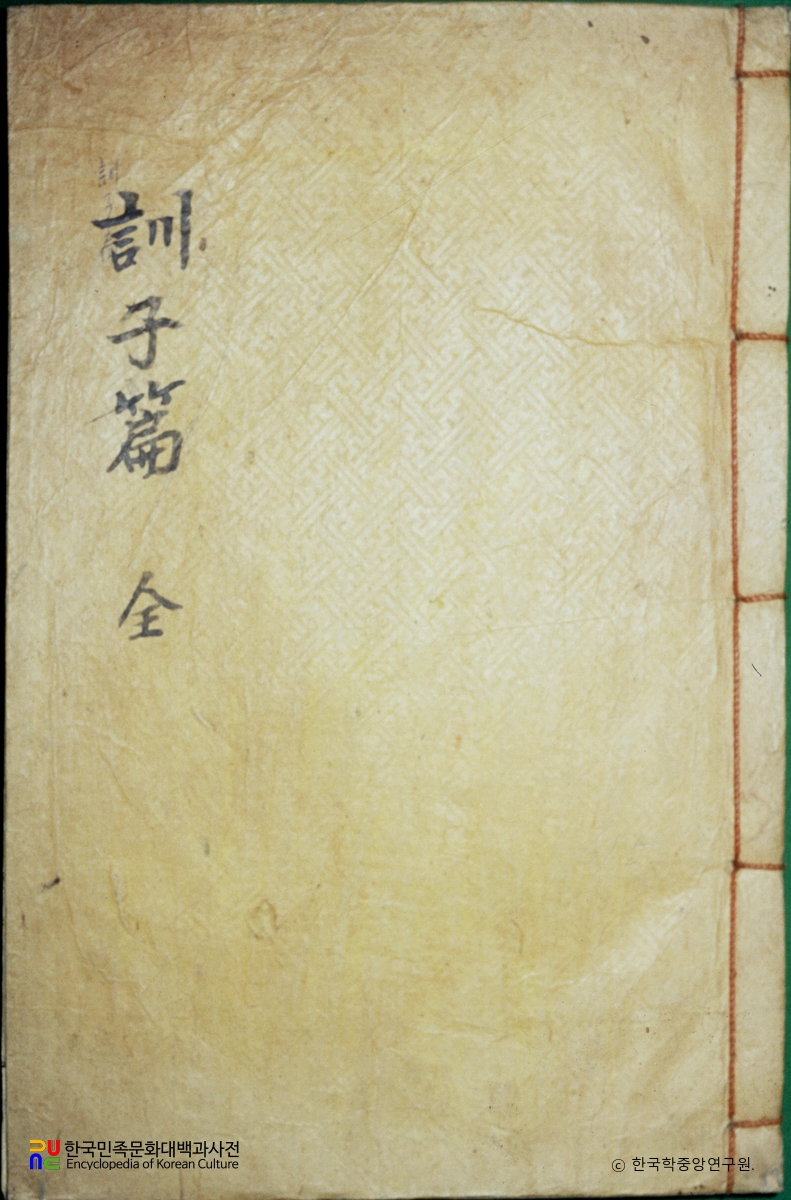 訓子篇 全
한국민족문화대백과사전
Encyclopedia of Korean Culture
ⓒ 한국학중앙연구원.